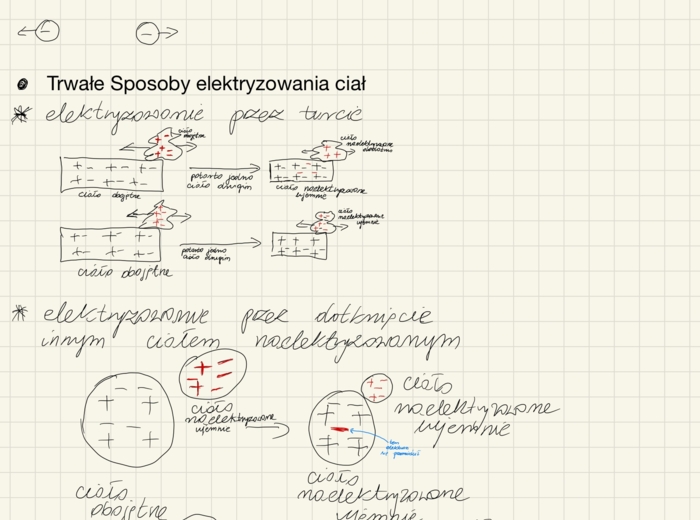 Trwałe Sposoby elektryzowania ciał
elektryzowanie przez tarcie
ciało obojętne
ciało naelektryzowane dodatnio
potarto jedno ciało drugim
ciało obojętne
ciało naelektryzowane ujemnie
ciało naelektryzowane ujemnie
potarto jedno ciało drugim
ciało obojętne
elektryzowanie przez dotknięcie
innym ciałem naelektryzowanym
ciało
naelektryzowane
ujemnie
ciało
naelektryzowane
ujemnie
ten
elektron
ciało
obojętne
ciało
naelektryzowane
ujemnie